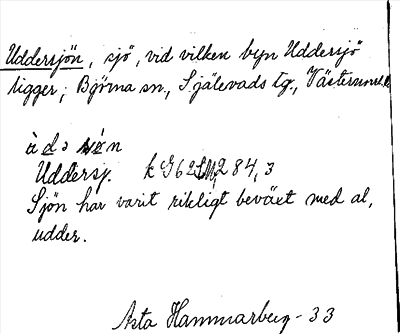 Uddersjön, sjö, vid vilken byn Uddersjö
ligger; Björna sn., Själevads tg., Västernorrl.
Uddersj. k G62 284,3
Sjön har varit rikligt beväxt med al,
udder.
Asta Hammarberg - 33